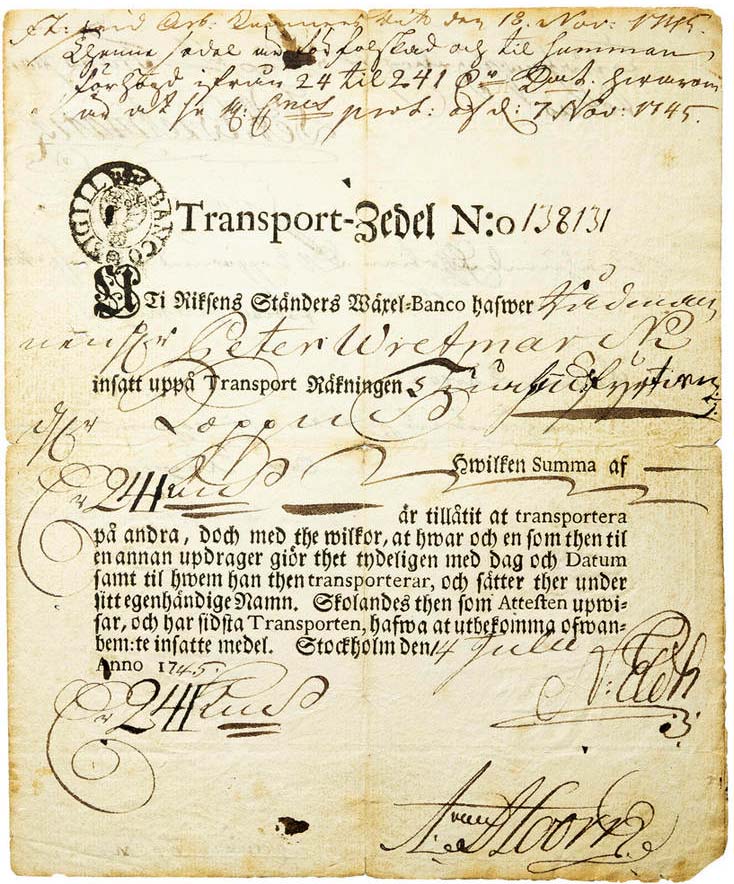 den 18. Nov: 1745.
Thenne sedel är förfalskad och til Summan
förhögd ifrån 24 til 241 Dr Kmt. hwarom
prot: af d: 7 Nov: 1745.
SIGILL BANCO
Transport-Zedel N:o 138131
Uti Riksens Ständers Wäxel-Banco hafwer
Peter Wretmarck
insatt uppå Transport Räkningen Tuuhundrafyrtioen
Dr
Hwilken Summa af
Dr 241 Kmt
är tillåtit at transportera
på andra, doch med the wilkor, at hwar och en som then til
en annan updrager giör thet tydeligen med dag och Datum
samt til hwem han then transporterar, och sätter ther under
sitt egenhändige Namn. Skolandes then som Attesten upwi-
sar, och har sidsta Transporten, hafwa at utbekomma ofwan-
bem:te insatte medel. Stockholm den 14 Julii
Anno 1745.
Dr 241 Kmt